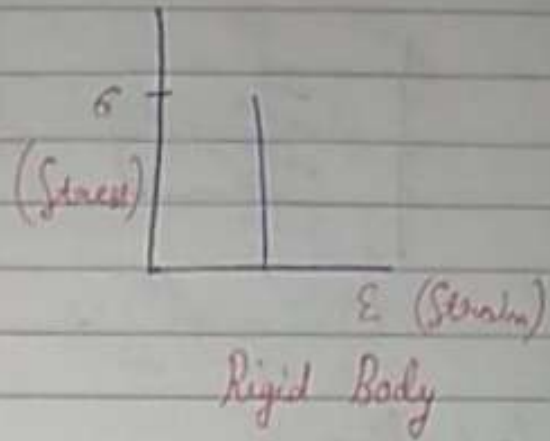 σ
(Stress)
ε (Strain)
Rigid Body